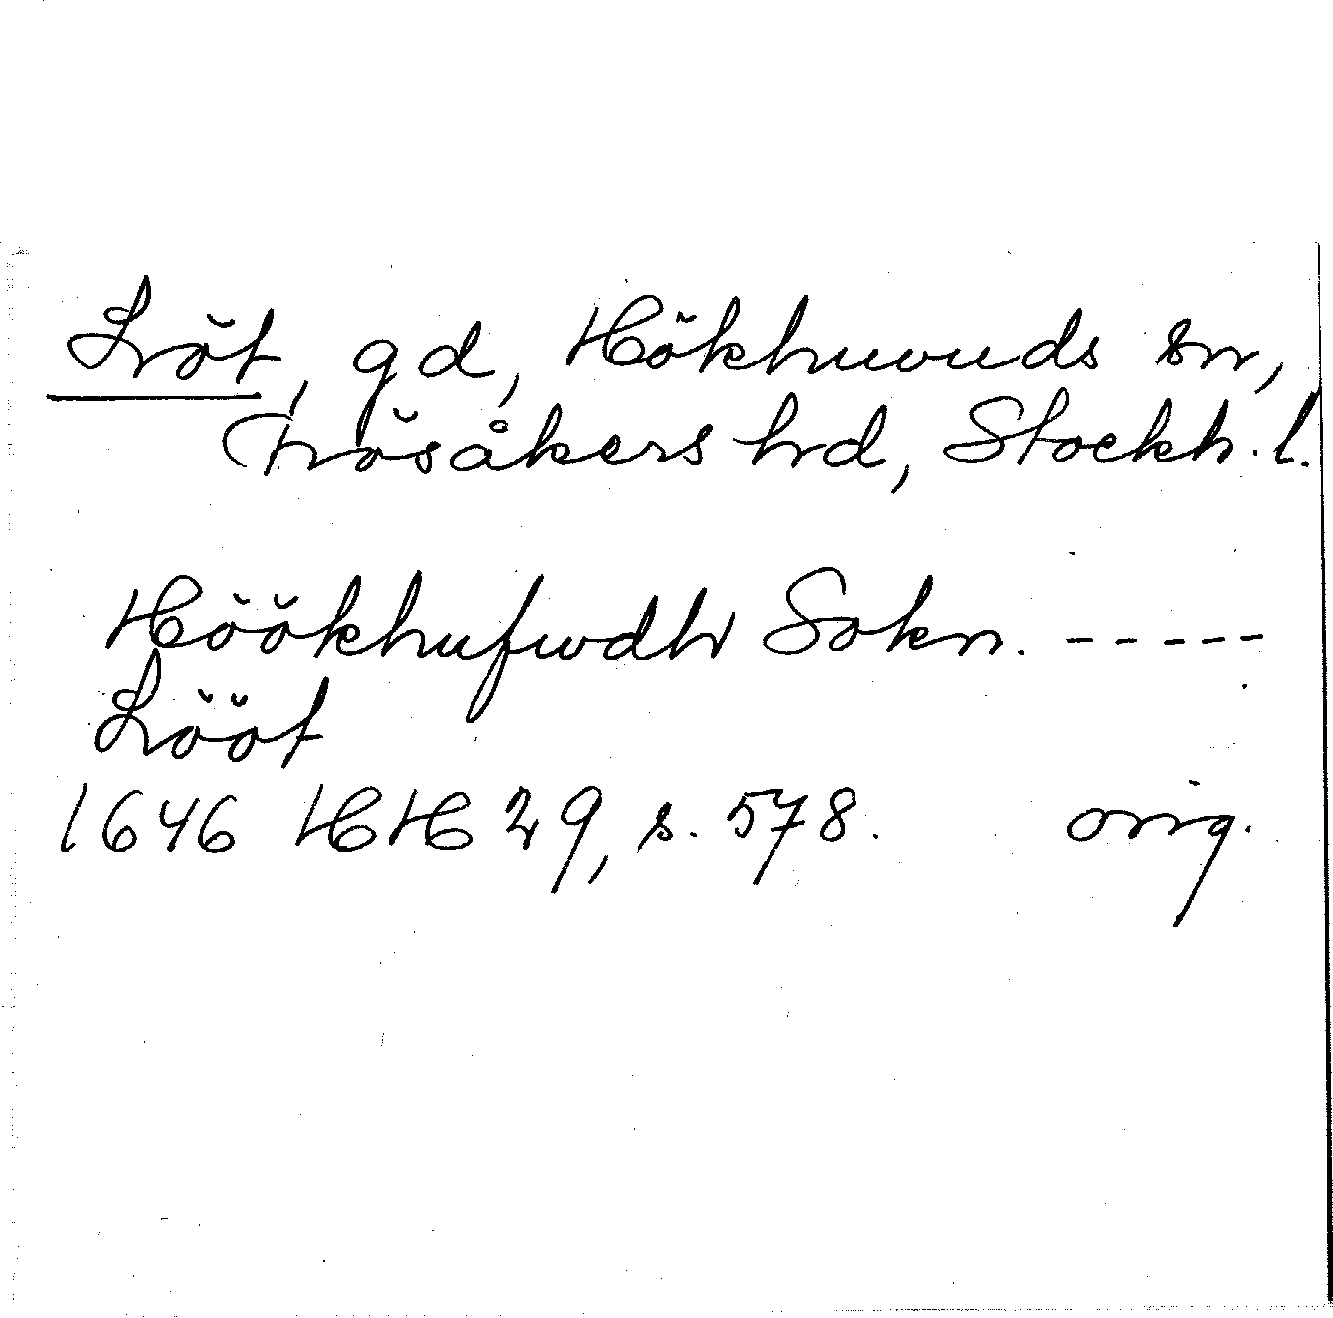 Löt, gd, Hökhuvuds sn,
Frösåkers hd, Stockh. l.
Höökhufwdh Sokn. -----
Lööt
1646 HH 29, s. 578. orig.